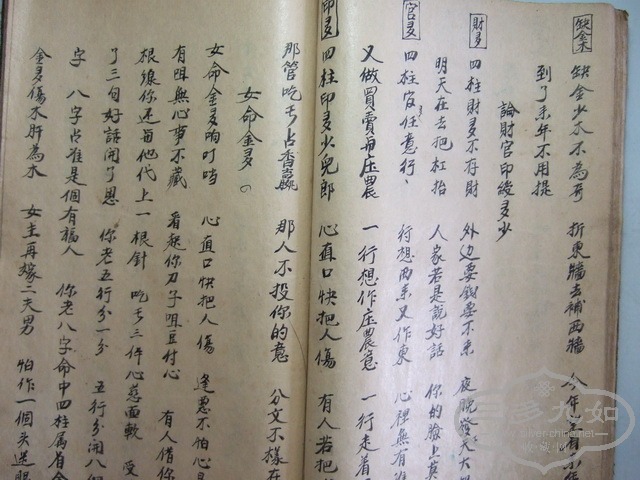 缺金木
缺金少木不為奇 折東牆去補西牆 今年
到了来年不用提
論財官印綬多少
財多
四柱財多不存財 外边要錢要不来 夜晚
明天在去把杠抬 人家若是說好話 你的臉上
官多
四柱官多任意行 行想西来又作東 心裡無有
又做買賣毎庄農 一行想作庄農意 一行走着
印多
四柱印多少兒郎 心直口快把人傷 有人若把
那管吃亏占香嬴 那人不投你的意 分文不
女命金多
女命金多响叮噹 心直口快把人傷 逢惡不怕心
有咀無心事不藏 看起你刀子咀豆付心 有人借你
根線你还毎他代上一根針 吃亏三件心慈面軟 受
了三句好話闹了恩 你老五行分一分 五行分闹八個
字 八字占准是個有福人 你老八字命中四柱属着金
金多傷木肝為木 女主再嫁二夫男 怕作一個头迷眼
三多九如
silver-chinese.net
收藏